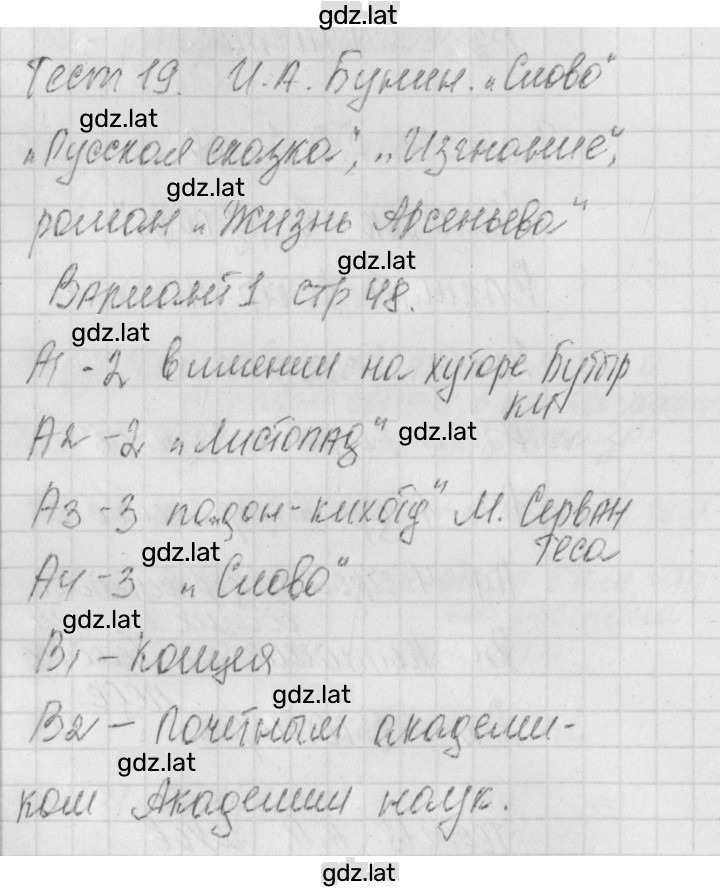 gdz.lat
Тест 19. И.А. Бунин. „Слово“
gdz.lat
„Русская сказка“, „Изгнание“,
gdz.lat
роман „Жизнь Арсеньева“
gdz.lat
Вариант 1 стр 48.
gdz.lat
А1 - 2 в имении на хуторе Бутыр
ки
А2 - 2 „Листопад“ gdz.lat
А3 - 3 по „дон-кихот“ М. Серван
теса
gdz.lat
А4 - 3 „Слово“
gdz.lat
В1 - Концея
gdz.lat
В2 - Почетным академи-
gdz.lat
ком Академии наук.
gdz.lat